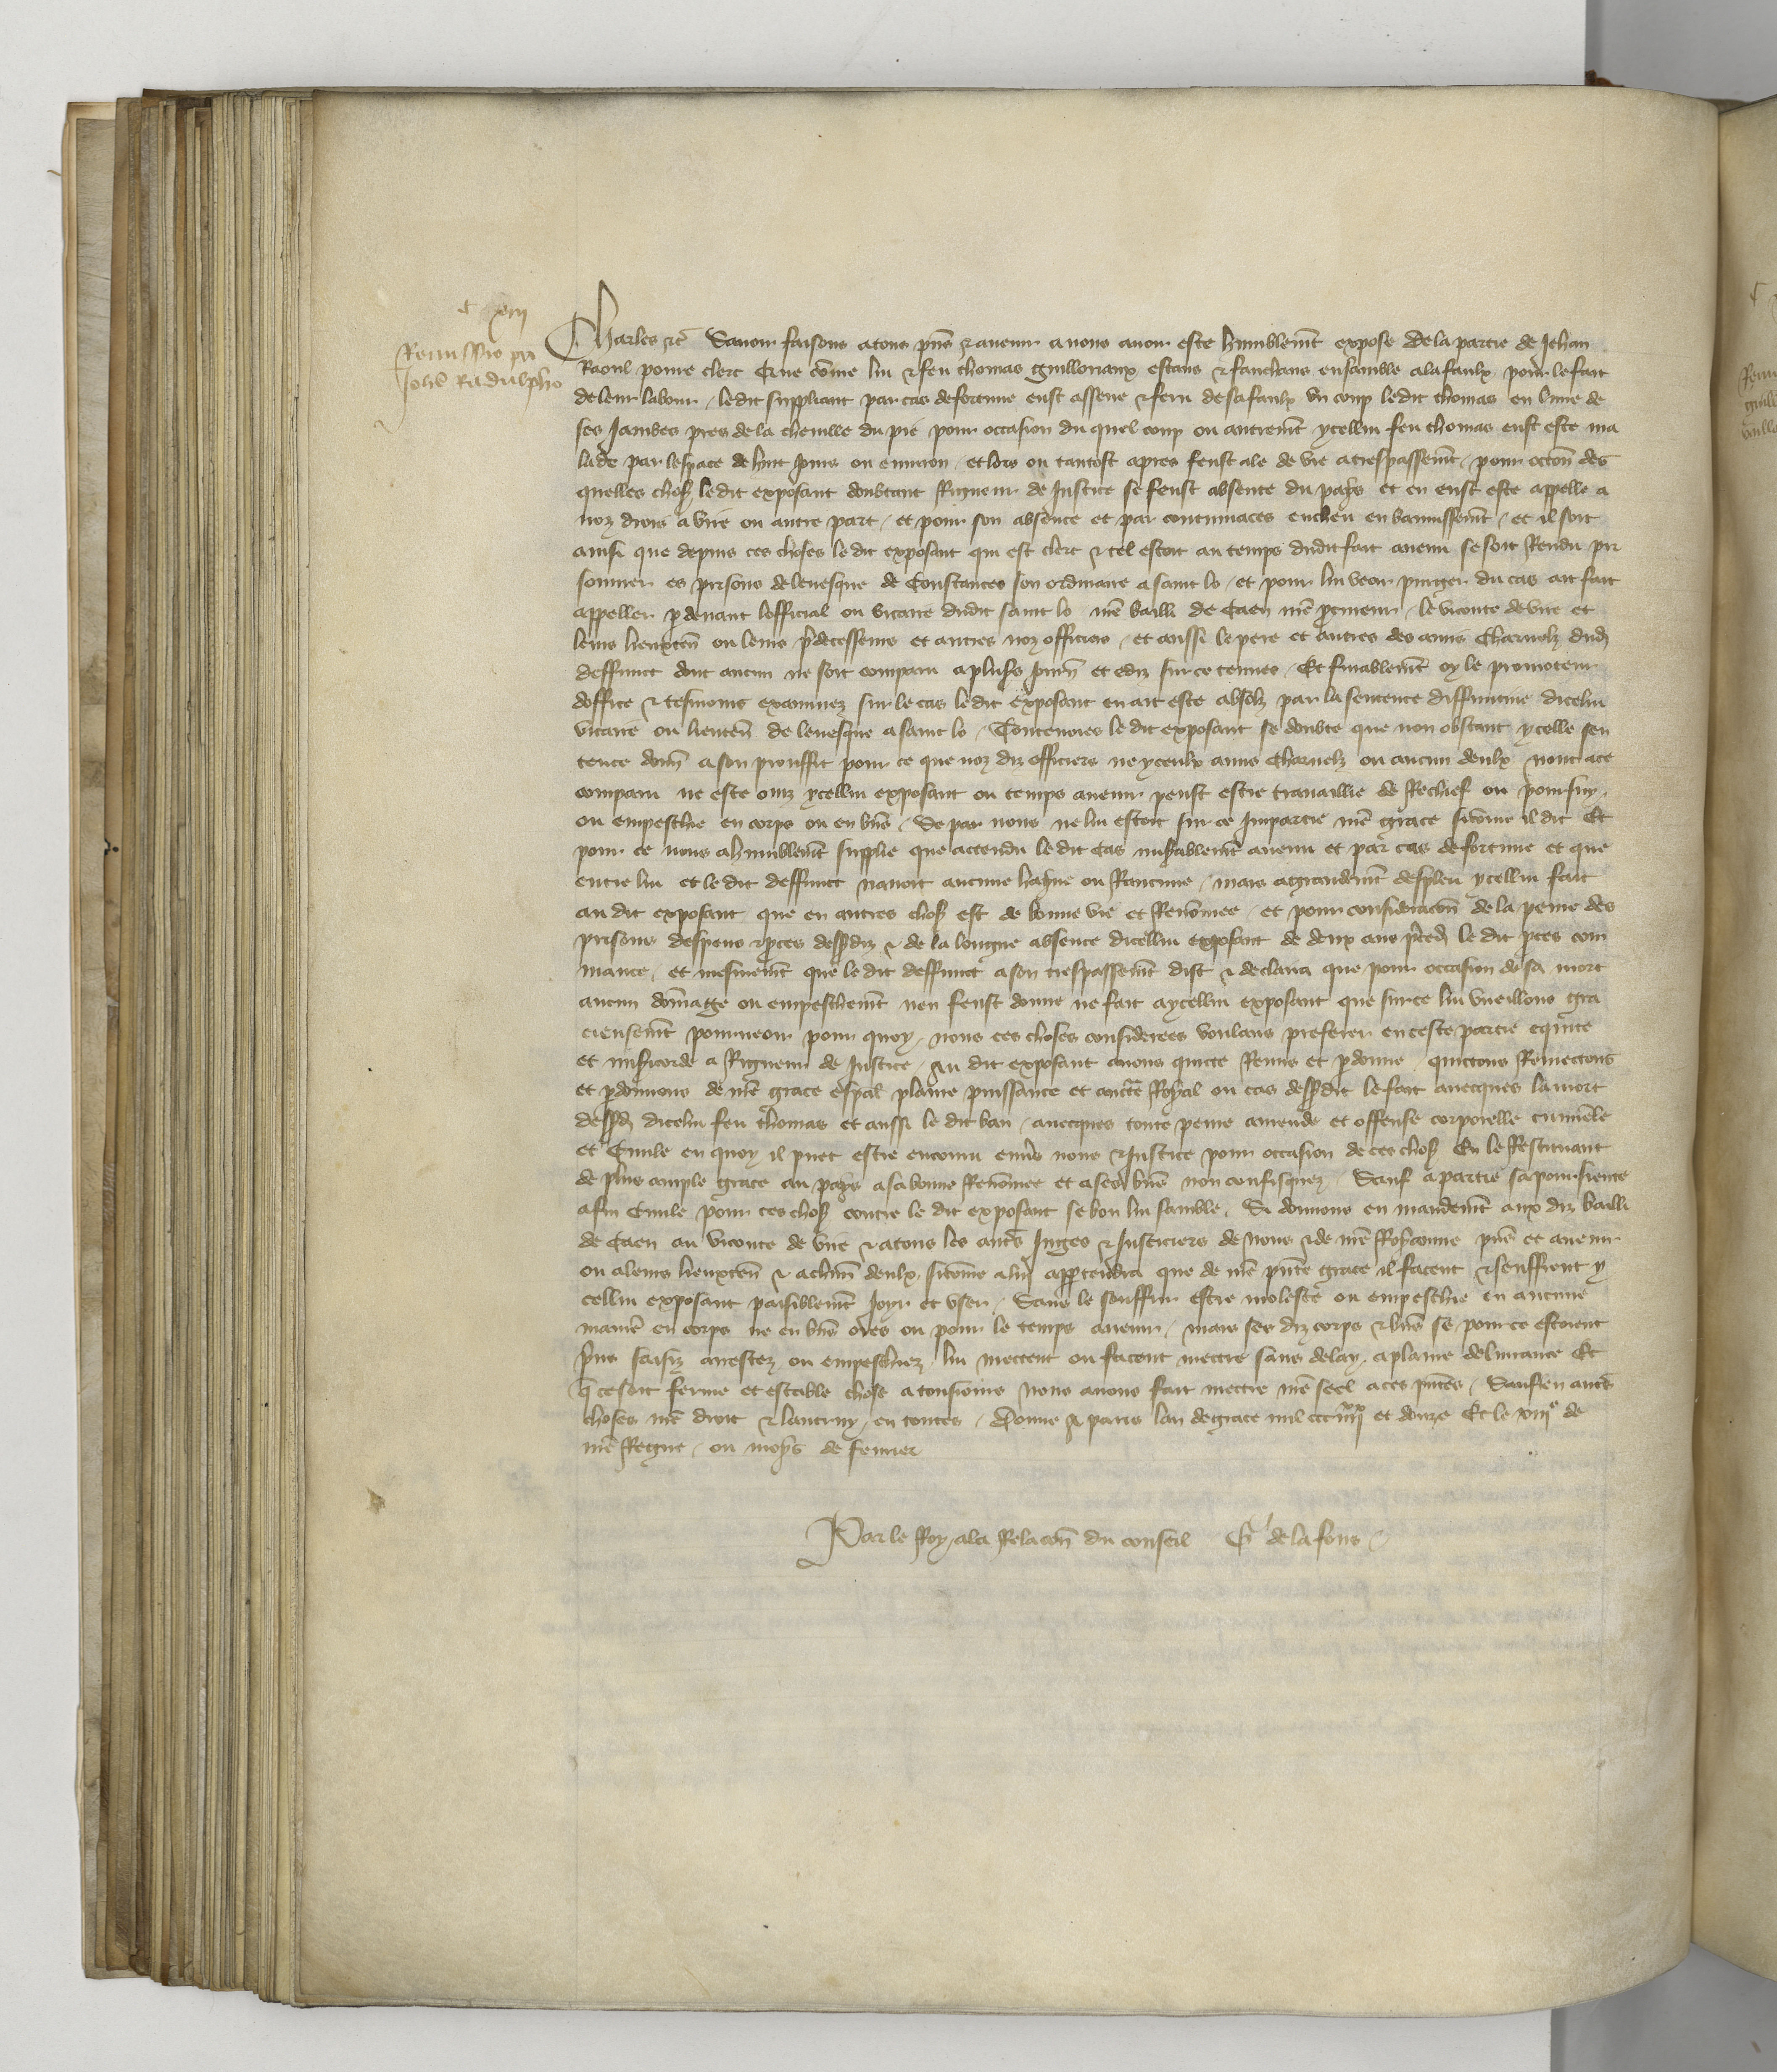 xiij
Remissio pro
Johe Radulpho
Charles etc Savoir faisons a tous pñs et avenir a nous avoir este humblemt expose de la partie de Jehan
Raoul povre clerc Que come lui et feu Thomas estans et fauchans ensamble a la faulx pour le fait
de leur labour, le dit suppliant par cas de fortune eust assene et feru de sa faulx un coup le dit Thomas en l'une de
ses jambes pres de la cheville du pie pour occasion du quel coup ou autremt ycellui feu Thomas eust este ma
lade par l'espace de huit jours ou environ, et lors ou tantost apres feust ale de vie a trespassemt, pour occon des
quelles chos le dit exposant doubtant Rigueur de Justice se feust absente du pays et en eust este appelle a
noz drois a Vire ou autre part, et pour son absence et par contumaces encheu en bannissemt, et il soit
ainsi que depuis ces choses le dit exposant qui est clerc et tel estoit au temps dudit fait avenu se soit Rendu pri
sonnier es prisons de levesque de Constances son ordinaire a saint lo, et pour lui veoir purger du cas ait fait
appeller pdevant lofficial ou vicaire dudit saint lo nre bailli de Caen nre pcureur, le viconte de Vire et
leurs lieuxten ou leurs pdecesseurs et autres noz officiers, et aussi le pere et autres des amis charnelz dud
deffunct dont aucun ne soit comparu a plusrs journ et ediz sur ce tenues, Et finablemt oy le promoteur
doffice et tesmoins examinez sur le cas le dit exposant en ait este absolz par la sentence diffinitive dicelui
vicaire ou lieuten de levesque a saint lo, Toutevoies le dit exposant se doubte que non obstant ycelle sen
tence donn a son prouffit pour ce que noz diz officiers ne yceulx amis charnelz ou aucun deulx nont a ce
comparu ne este oiz ycellui exposant ou temps avenir peust estre travaillie de Rechief ou poursuy,
ou empeschie en corps ou en biens, Se par nous ne lui estoit sur ce Impartie nre grace sicome il dit Et
pour ce nous a humblemt supplie que attendu le dit cas misablemt avenu et par cas de fortune et que
entre lui et le dit deffunct navoit aucune hayne ou Rancune, mais a grandemt despleu ycellui fait
au dit exposant que en autres chos est de bonne vie et Renomee, et pour consideracon de la peine des
prisons despens et pces dessdiz et de la longue absence dicellui exposant de deux ans pced le dit pces com
mance, et mesmemt que le dit deffunct a son trespassemt dist et declaira que pour occasion de sa mort
aucun domage ou empeschemt nen feust donne ne fait a ycellui exposant que sur ce lui vueillons gra
cieusemt pourveoir pour quoy, nous ces choses considerees voulans preferer en ceste partie equite
et misicorde a Rigueur de Justice, Au dit exposant avons quicte Remis et pdonne, quictons Remectons
et pdonnons de nre grace espal plaine puissance et aucte Royal ou cas dessdit le fait avecques la mort
dessd dicelui feu Thomas et aussi le dit ban, avecques toute peine amende et offense corporelle crimiele
et Civile en quoy il puet estre encouru envs nous et Justice pour occasion de ces chos En le Restituant
de plus ample grace au pays a sa bonne Renomee et a ses biens non confisquez, Sauf a partie sa poursieute
a fin Civile pour ces chos contre le dit exposant se bon lui samble, Si donnons en mandemt aux diz bailli
de Caen au viconte de Vire et a tous les autrs Juges et Justiciers de nous et de nre Royaume pñs et avenir
ou a leurs lieuxten et a chun deulx, sicome a lui apptendra que de nre pñte grace il facent et seuffrent y
cellui exposant paisiblemt Joyr et user, Sans le souffrir estre moleste ou empeschie en aucune
maniere en corps ne en biens ores ou pour le temps avenir, mais ses diz corps et biens se pour ce estoient
pris saisiz arrestez ou empeschiez, lui mectent ou facent mectre sans delay, a plaine delivrance Et
q ce soit ferme et estable chose a tousiours Nous avons fait mectre nre seel a ces pñtes, Sauf en autrs
choses nre droit et lautruy, en toutes, Donne A paris lan de grace mil ccc iiiixx et douze Et le xiije de
nre Regne, ou moys de fevrier
Par le Roy, a la Relacon du conseil G de la fons